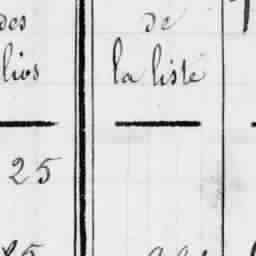 des
lios
de
la liste
25